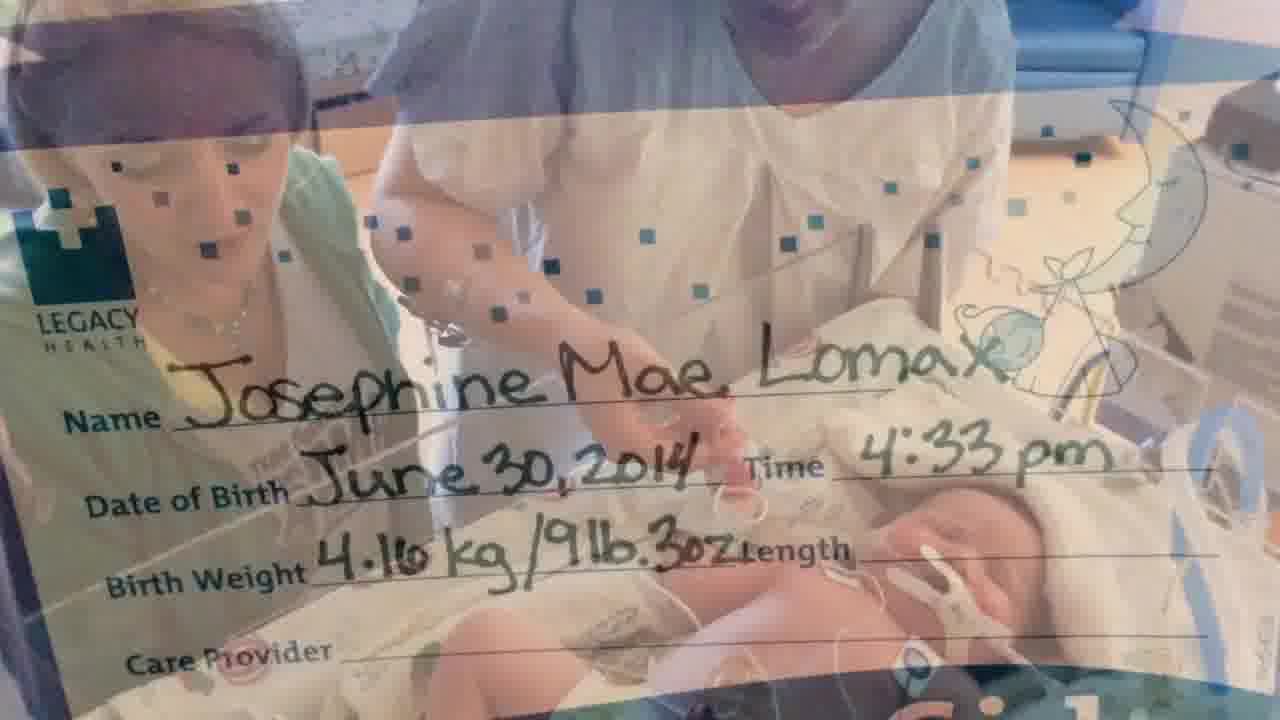 LEGACY
HEALTH
Name Josephine Mae Lomax
Date of Birth June 30, 2014 Time 4:33 pm
Birth Weight 4.16 kg/9lb.3oz Length
Care Provider